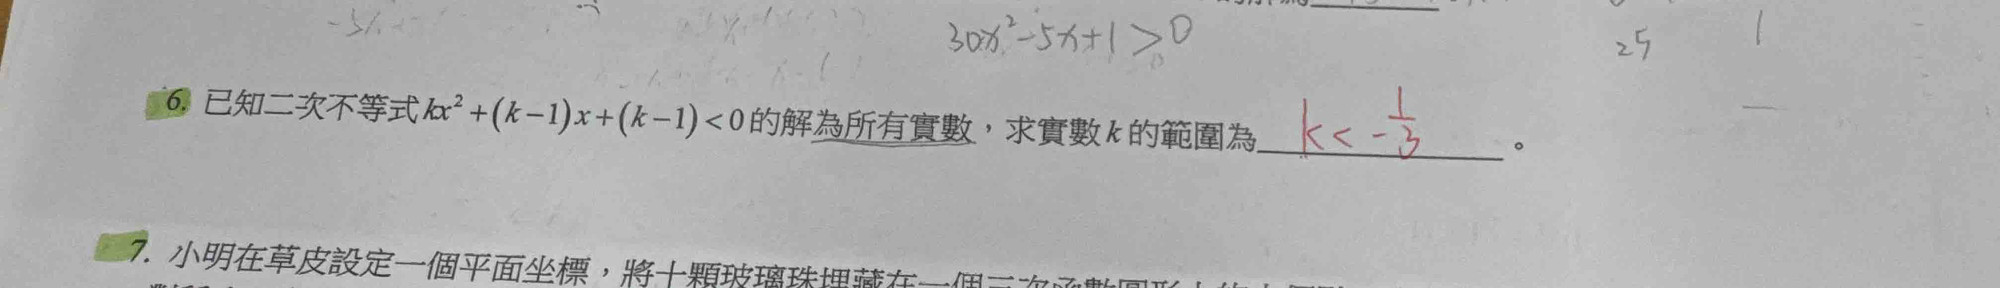 30x²-5x+1>0
25
1
6. 已知二次不等式kx²+(k-1)x+(k-1)<0的解為所有實數，求實數k的範圍為 k < -1/3 。
7. 小明在草皮設定一個平面坐標，將十顆玻璃珠埋藏在一個三次函數圖形上的